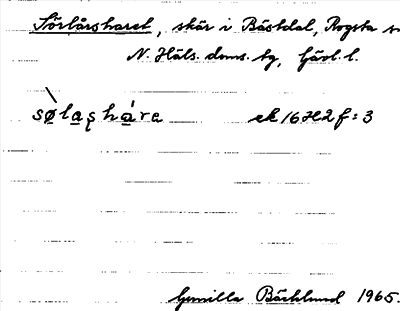 Sörlårsharet, skär i Bästdal, Rogsta s
N. Häls. doms. tg, Gävl. l.
sølas̨háre ek 16H2f:3
Gunilla Bäcklund 1965.